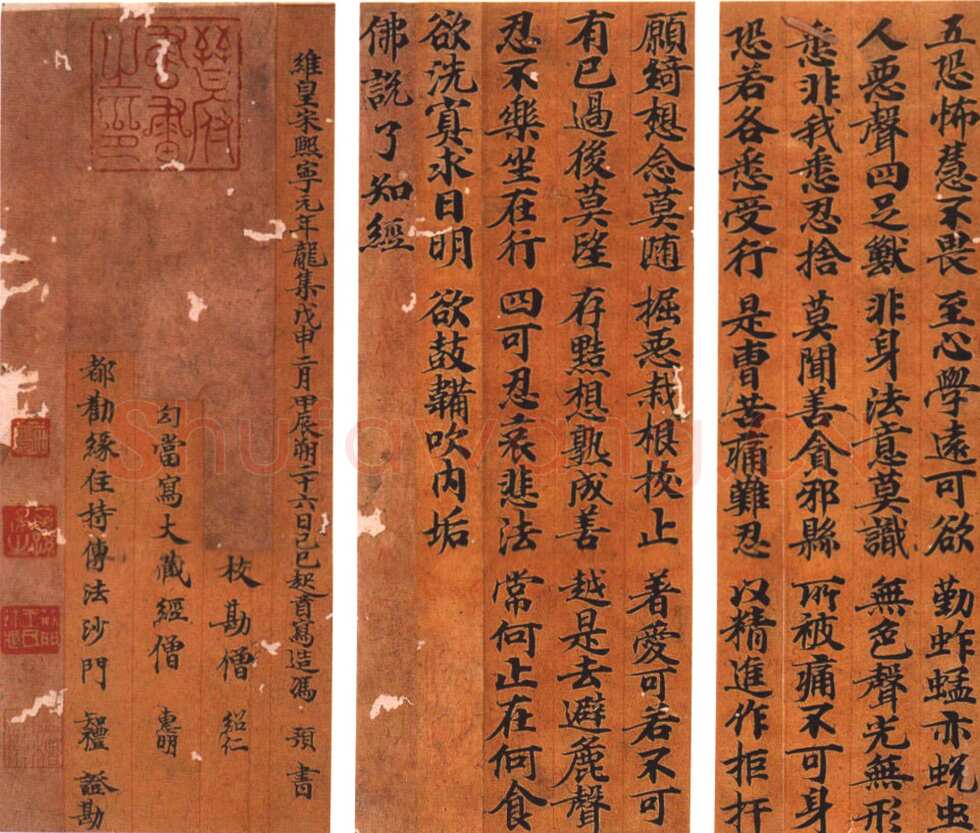 五恐怖慧不畏 至心學遠可欲 勤蚱蜢亦蛻虫
人惡聲四足獸 非身法意莫識 無色聲光無形
恚非我悉忍捨 莫聞善貪邪縣 所被痛不可身
恐若各悉受行 是曹苦痛難忍 以精進作拒扞
願綺想念莫隨 掘惡栽根拔止 著愛可若不可
有已過後莫望 存黠想熟成善 越是去避麁聲
忍不樂坐在行 四可忍哀悲法 常何止在何食
欲洗寘求日明 欲鼓鞴吹内垢
佛說了知經
維皇宋熙寧元年龍集戊申二月甲辰朔二十六日己巳起首寫造馮 預 書
校勘僧 紹仁
勾當寫大藏經僧 惠明
都勸緣住持傳法沙門 證勘
晉府書畫之印
Shufawang.cn